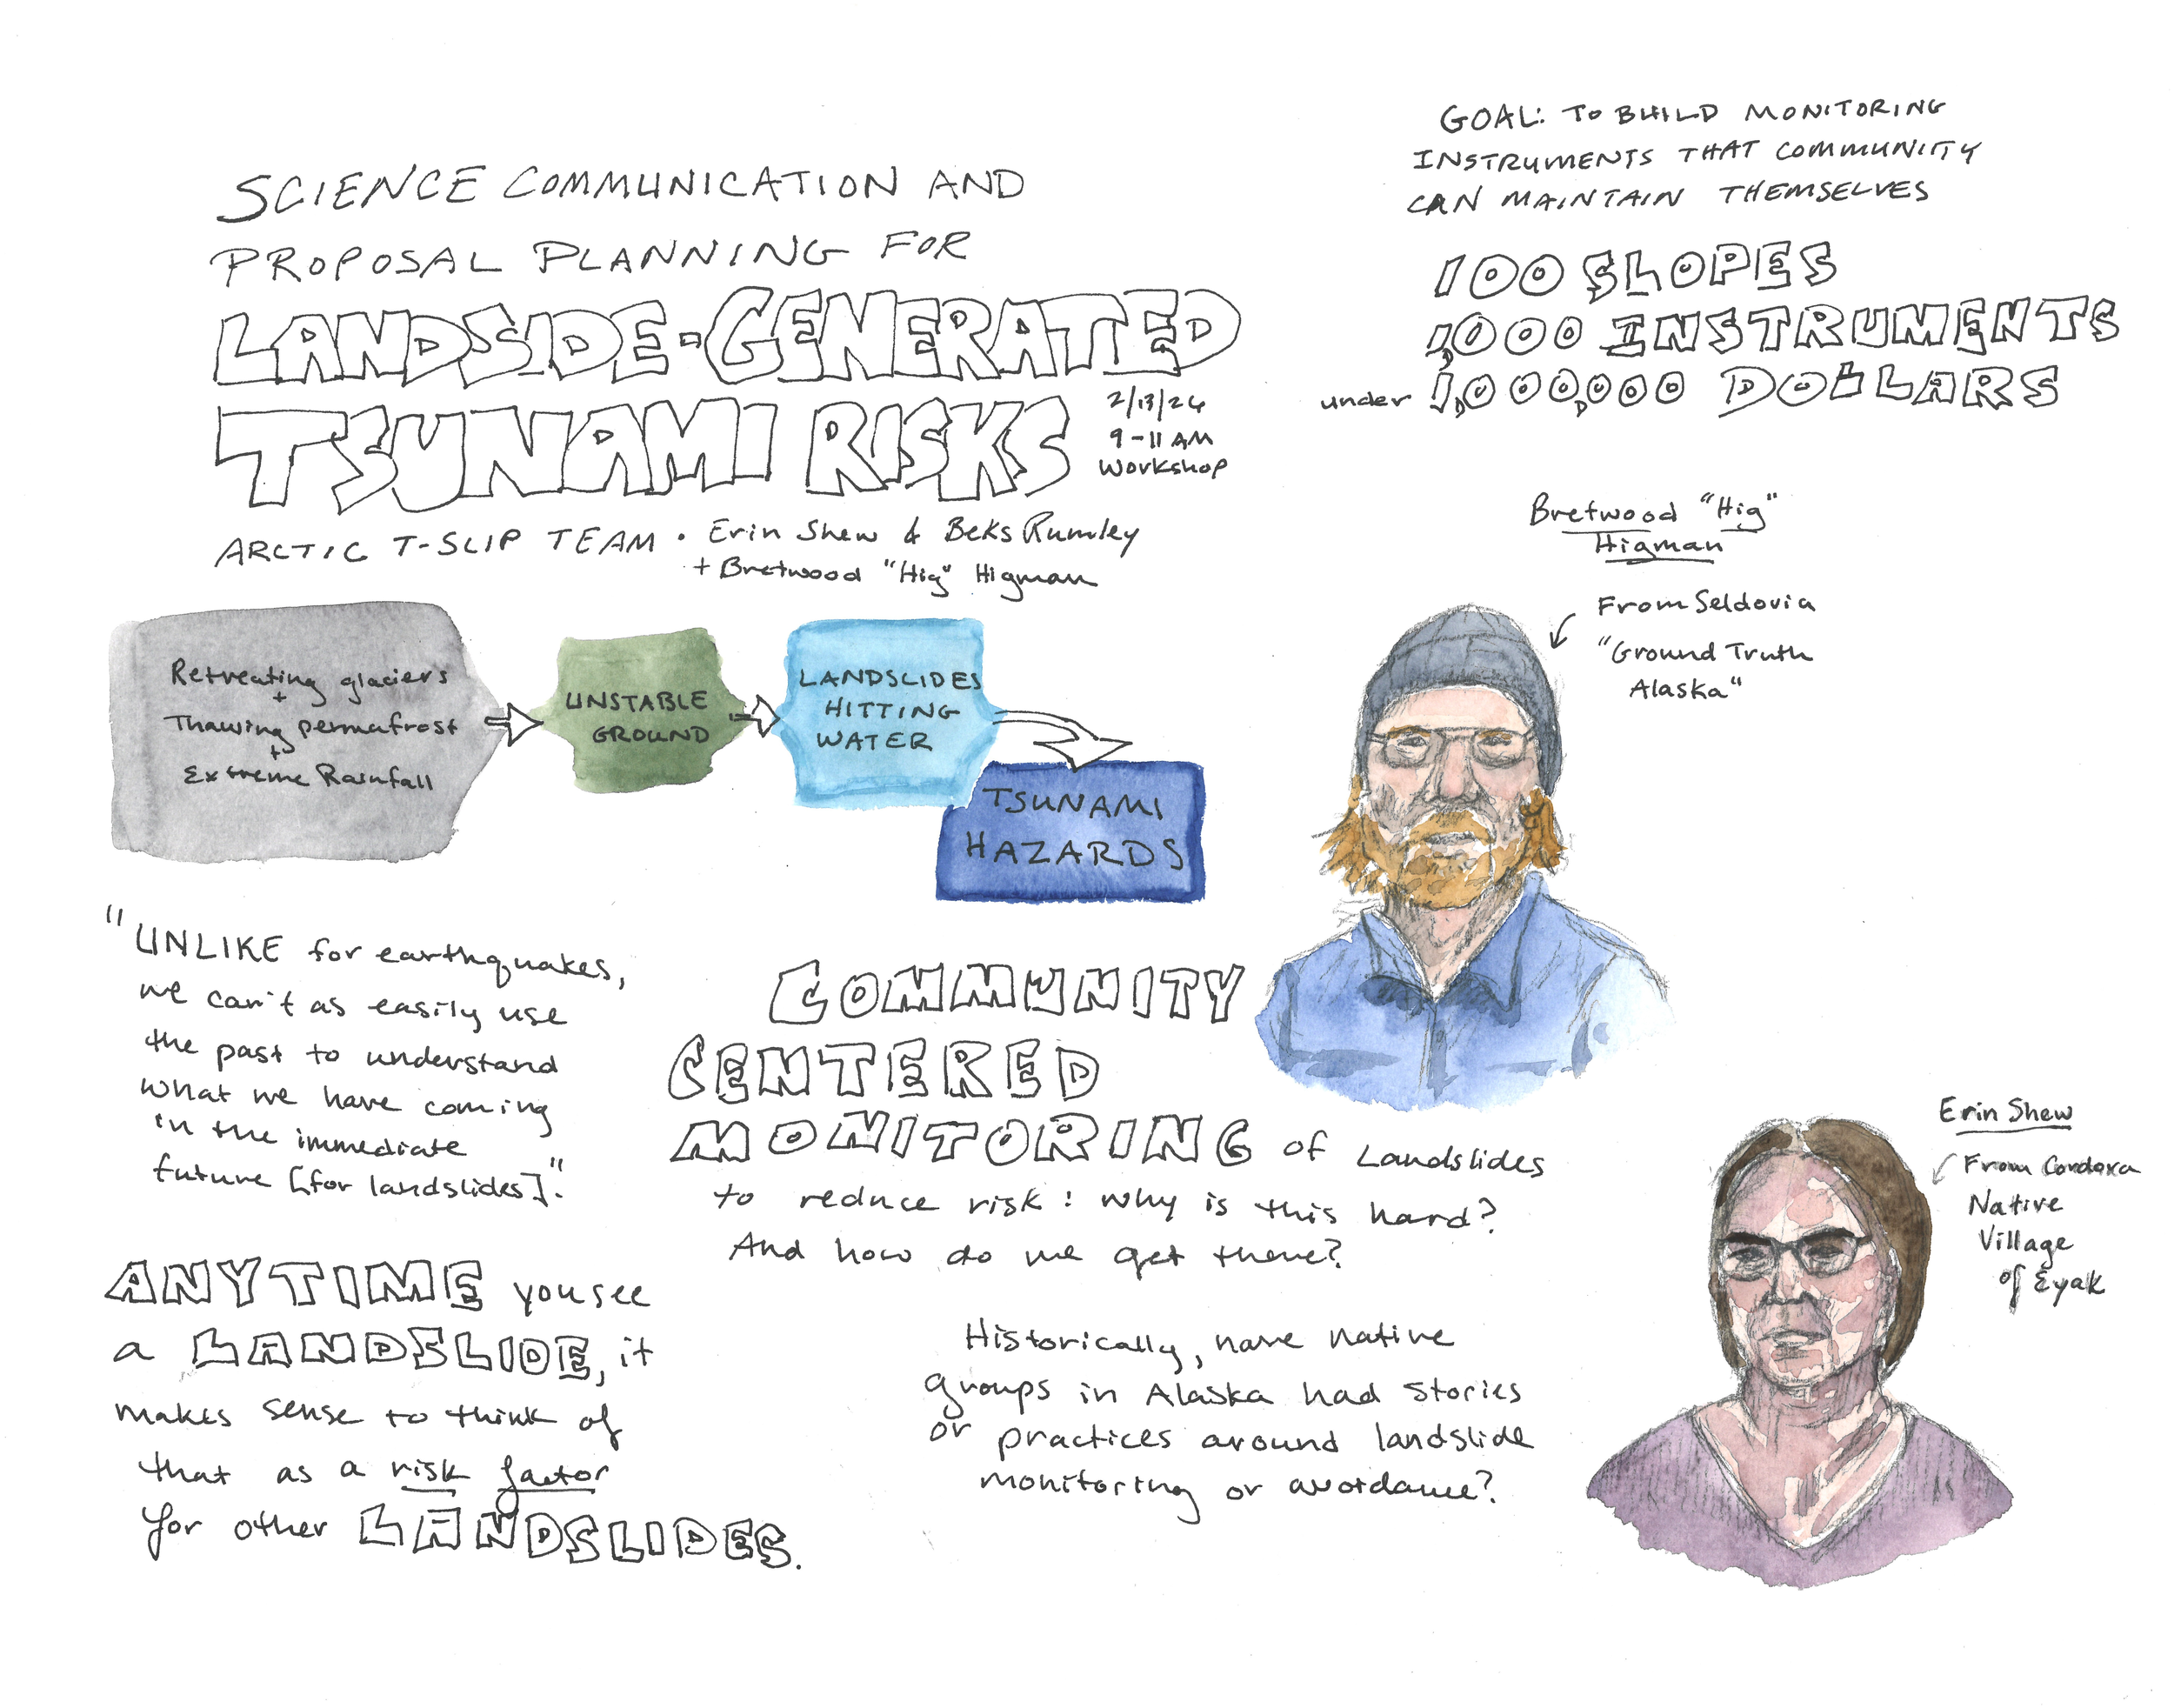 SCIENCE COMMUNICATION AND
PROPOSAL PLANNING FOR
LANDSIDE-GENERATED
TSUNAMI RISKS
2/13/26
9-11 AM
Workshop
ARCTIC T-SLIP TEAM • Erin Shew & Beks Rumley
+ Bretwood "Hig" Higman
GOAL: TO BUILD MONITORING
INSTRUMENTS THAT COMMUNITY
CAN MAINTAIN THEMSELVES
100 SLOPES
1,000 INSTRUMENTS
under 1,000,000 DOLLARS
Bretwood "Hig"
Higman
From Seldovia
"Ground Truth
Alaska"
Retreating glaciers
+
Thawing permafrost
+
Extreme Rainfall
UNSTABLE
GROUND
LANDSLIDES
HITTING
WATER
TSUNAMI
HAZARDS
"UNLIKE for earthquakes,
we can't as easily use
the past to understand
what we have coming
in the immediate
future [for landslides]."
ANYTIME you see
a LANDSLIDE, it
makes sense to think of
that as a risk factor
for other LANDSLIDES.
COMMUNITY
CENTERED
MONITORING of Landslides
to reduce risk: why is this hard?
And how do we get there?
Historically, have native
groups in Alaska had stories
or practices around landslide
monitoring or avoidance?
Erin Shew
From Cordova
Native
Village
of Eyak